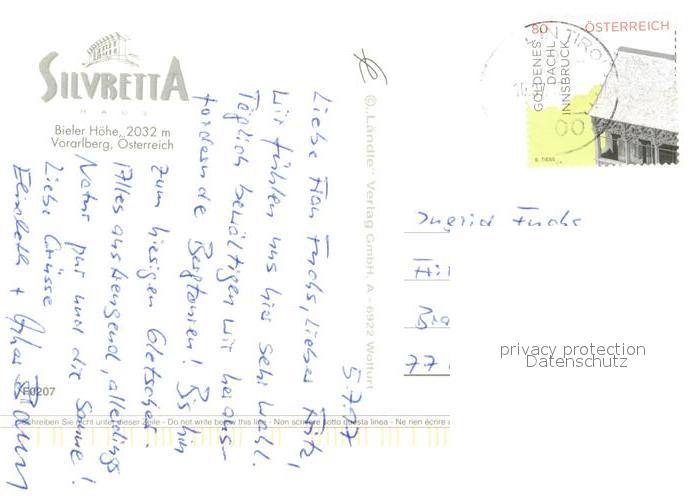 SILVRETTA
HAUS
Bieler Höhe, 2032 m
Vorarlberg, Österreich
© „Ländle" Verlag GmbH. A - 6922 Wolfurt
80 ÖSTERREICH
GOLDENES
DACHL
INNSBRUCK
IN TIROL
5.7.07
Liebe Frau Fuchs, lieber Fritz,
wir fühlen uns hier sehr wohl.
Täglich bewältigen wir heraus-
fordernde Bergtouren! Bis hin
zum hiesigen Gletscher.
Alles anstrengend, allerdings
Natur pur und die Sonne!
Liebe Grüsse
Elisabeth +
Ingrid Fuchs
77
privacy protection
Datenschutz
F0207
schreiben Sie nicht unter dieser Zeile - Do not write below this line - Non scrivere sotto questa linea - Ne rien écrire